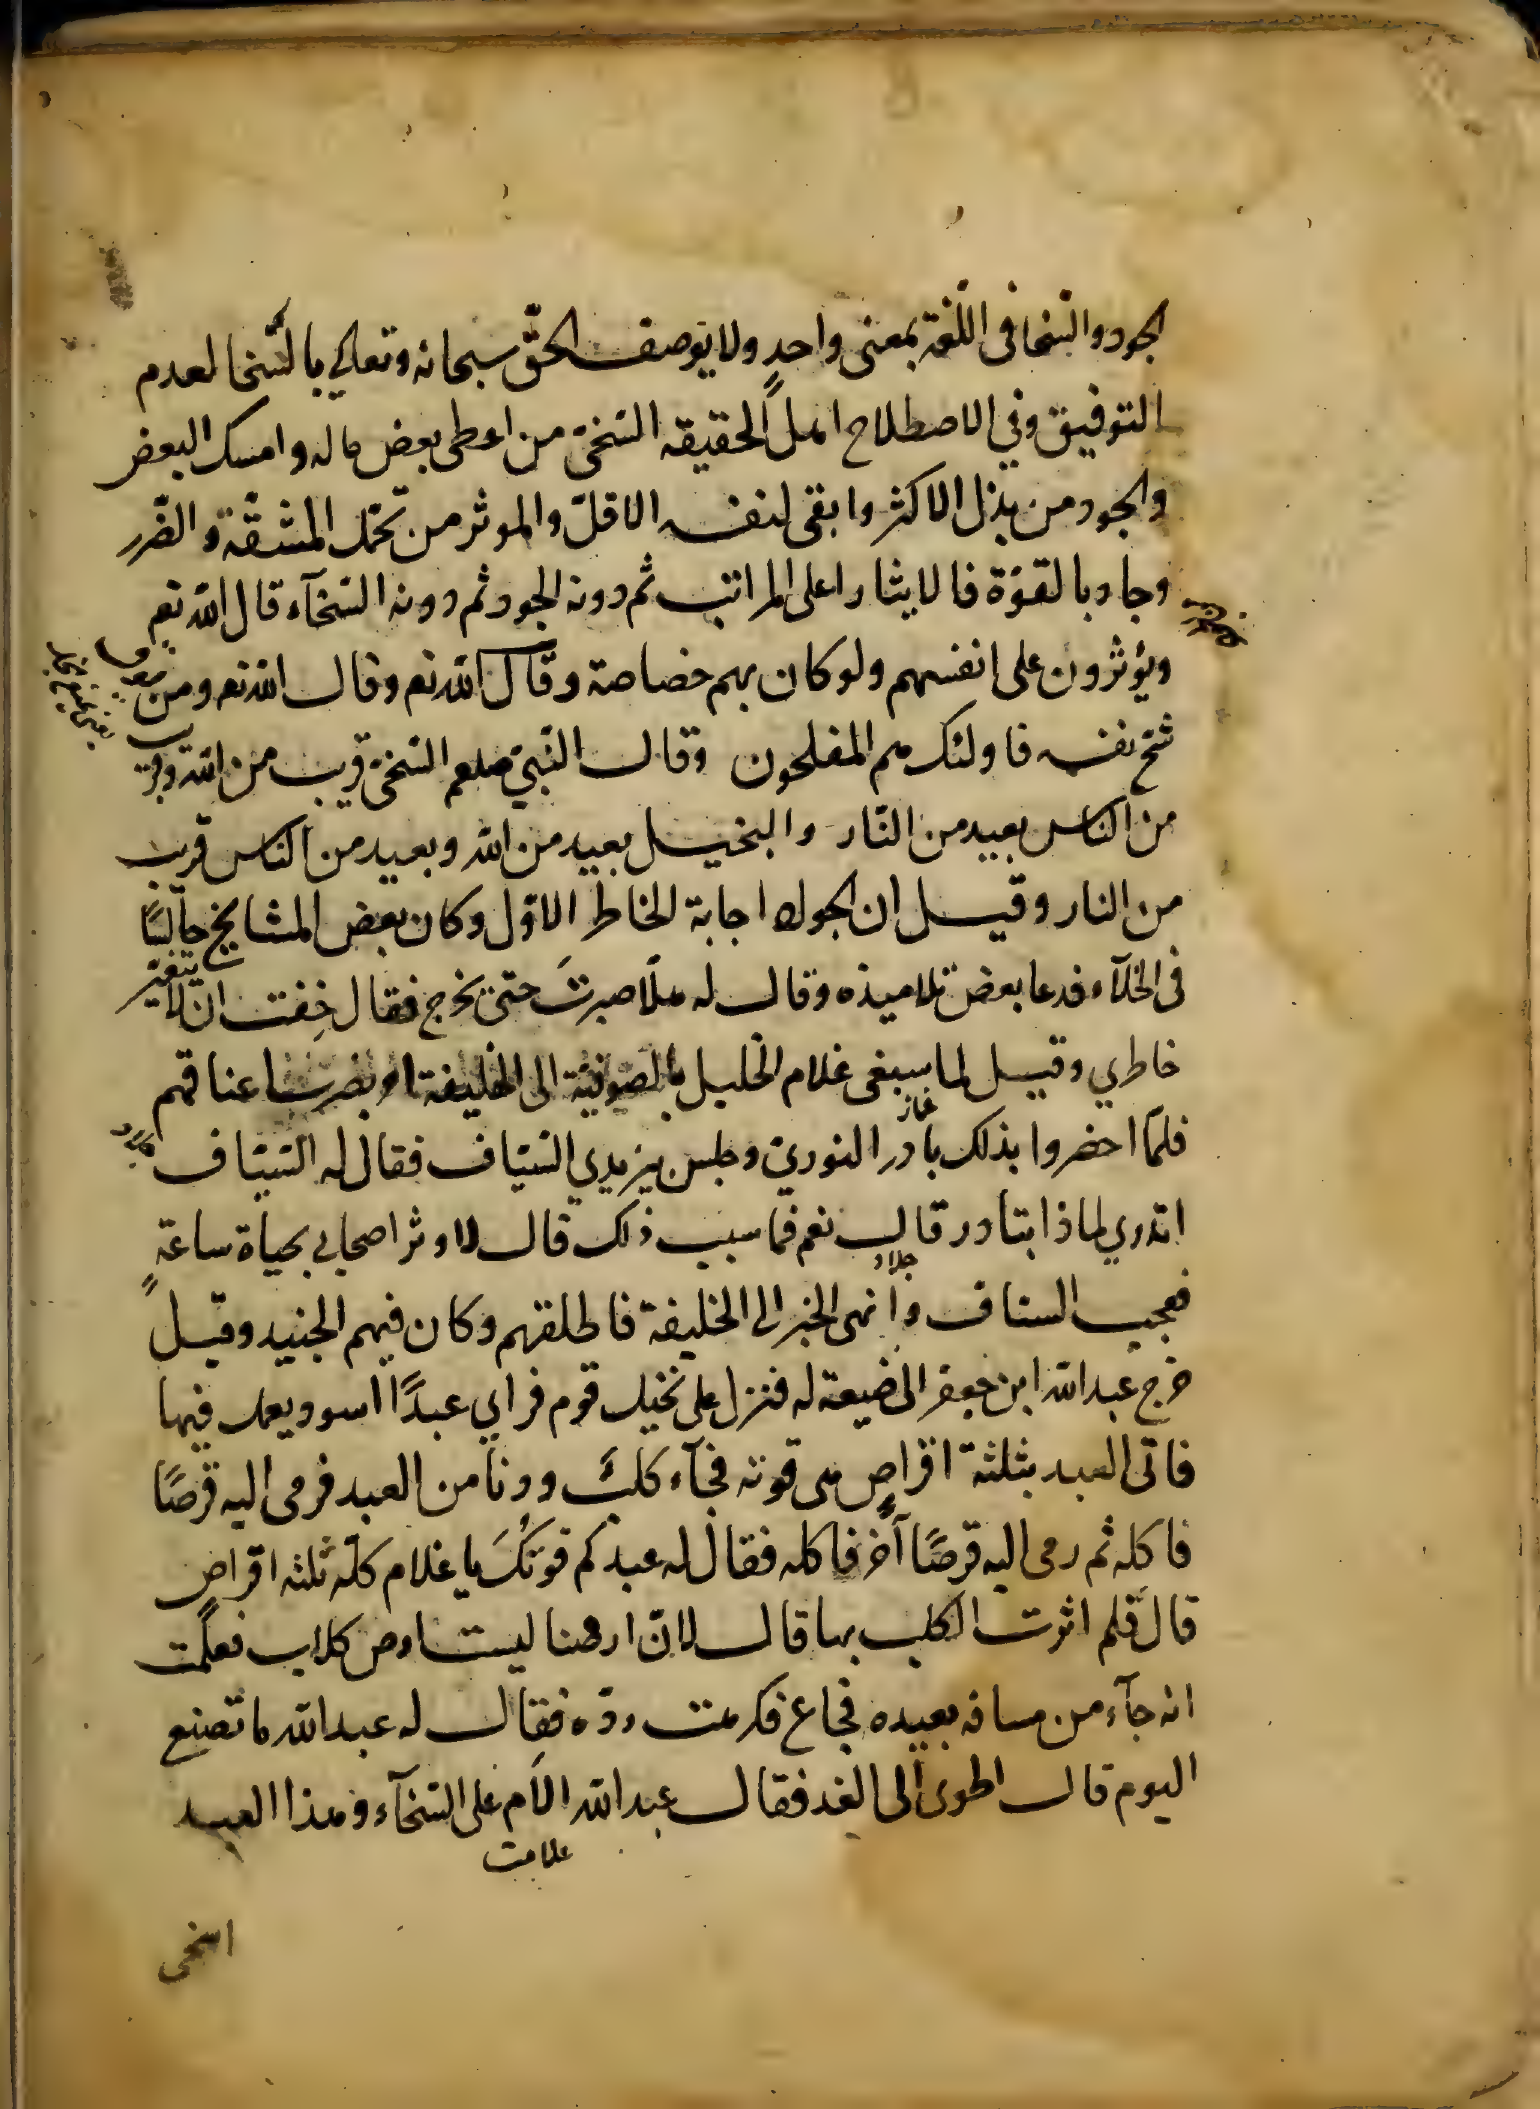 الجود والسخا فى اللّغة بمعنى واحدٍ ولا يوصف الحقّ سبحانه وتعالي بالسّخا لعدم
التوفيق وفي الاصطلاح اهل الحقيقه السّخىّ من اعطى بعض ماله وامسك البعض
والجود من بذل الاكثر وابقى لنفسه الاقلّ والموثر من تحمّل المشقّة والضّرر
وجاد بالقوّة فالايثار اعلى المراتب ثم دونه الجود ثم دونه السّخآء قال اللّه تع
ويؤثرون على انفسهم ولو كان بهم خصاصة وقال اللّه تع وقال اللّه تع ومن يوق
شحّ نفسه فاولئك هم المفلحون وقال النّبىّ صلعم السّخىّ قريب من اللّه وقريب
من الناس بعيد من النّار والبخيل بعيد من اللّه وبعيد من الناس قريب
من النار وقيل ان الجود اجابة الخاطر الاوّل وكان بعض المشايخ جالسًا
فى الخلآء فدعا بعض تلاميذه وقال له هلّا صبرتَ حتى يخرج فقال خِفت ان لا يتغيّر
خاطري وقيل لما سعى غلام الخليل بالصوفيّة الى الخليفة امر بضرب اعناقهم
فلمّا احضروا بذلك بادر النوريّ وجلس بين يدي السّيّاف فقال له السّيّاف
اتدري لماذا ابتادر قال نعم فما سبب ذلك قال لاوثر اصحابي بحياة ساعةٍ
جلاد
فعجب السياف وانهى الخبر الى الخليفة فاطلقهم وكان فيهم الجنيد وقيل
خرج عبد اللّه ابن جعفر الى ضيعة له فنزل على نخيل قوم فراي عبدًا اسود يعمل فيها
فاتى العبد بثلثة اقراصٍ هى قوته فجآء كلبٌ ودنا من العبد فرمى اليه قرصًا
فاكله ثم رمى اليه قرصًا آخر فاكله فقال له عبد كم قوتكَ يا غلام كلّه ثلثه اقراص
قال فلم اثرت الكلب بها قال لانّ ارضنا ليست ارض كلاب فعلمت
انه جآء من مسافه بعيده فجاع فكرهت ردّه فقال له عبد اللّه ما تصنع
اليوم قال اطوى الى الغد فقال عبد اللّه الاَم على السّخآء وهذا العبد
علامت
اسخى